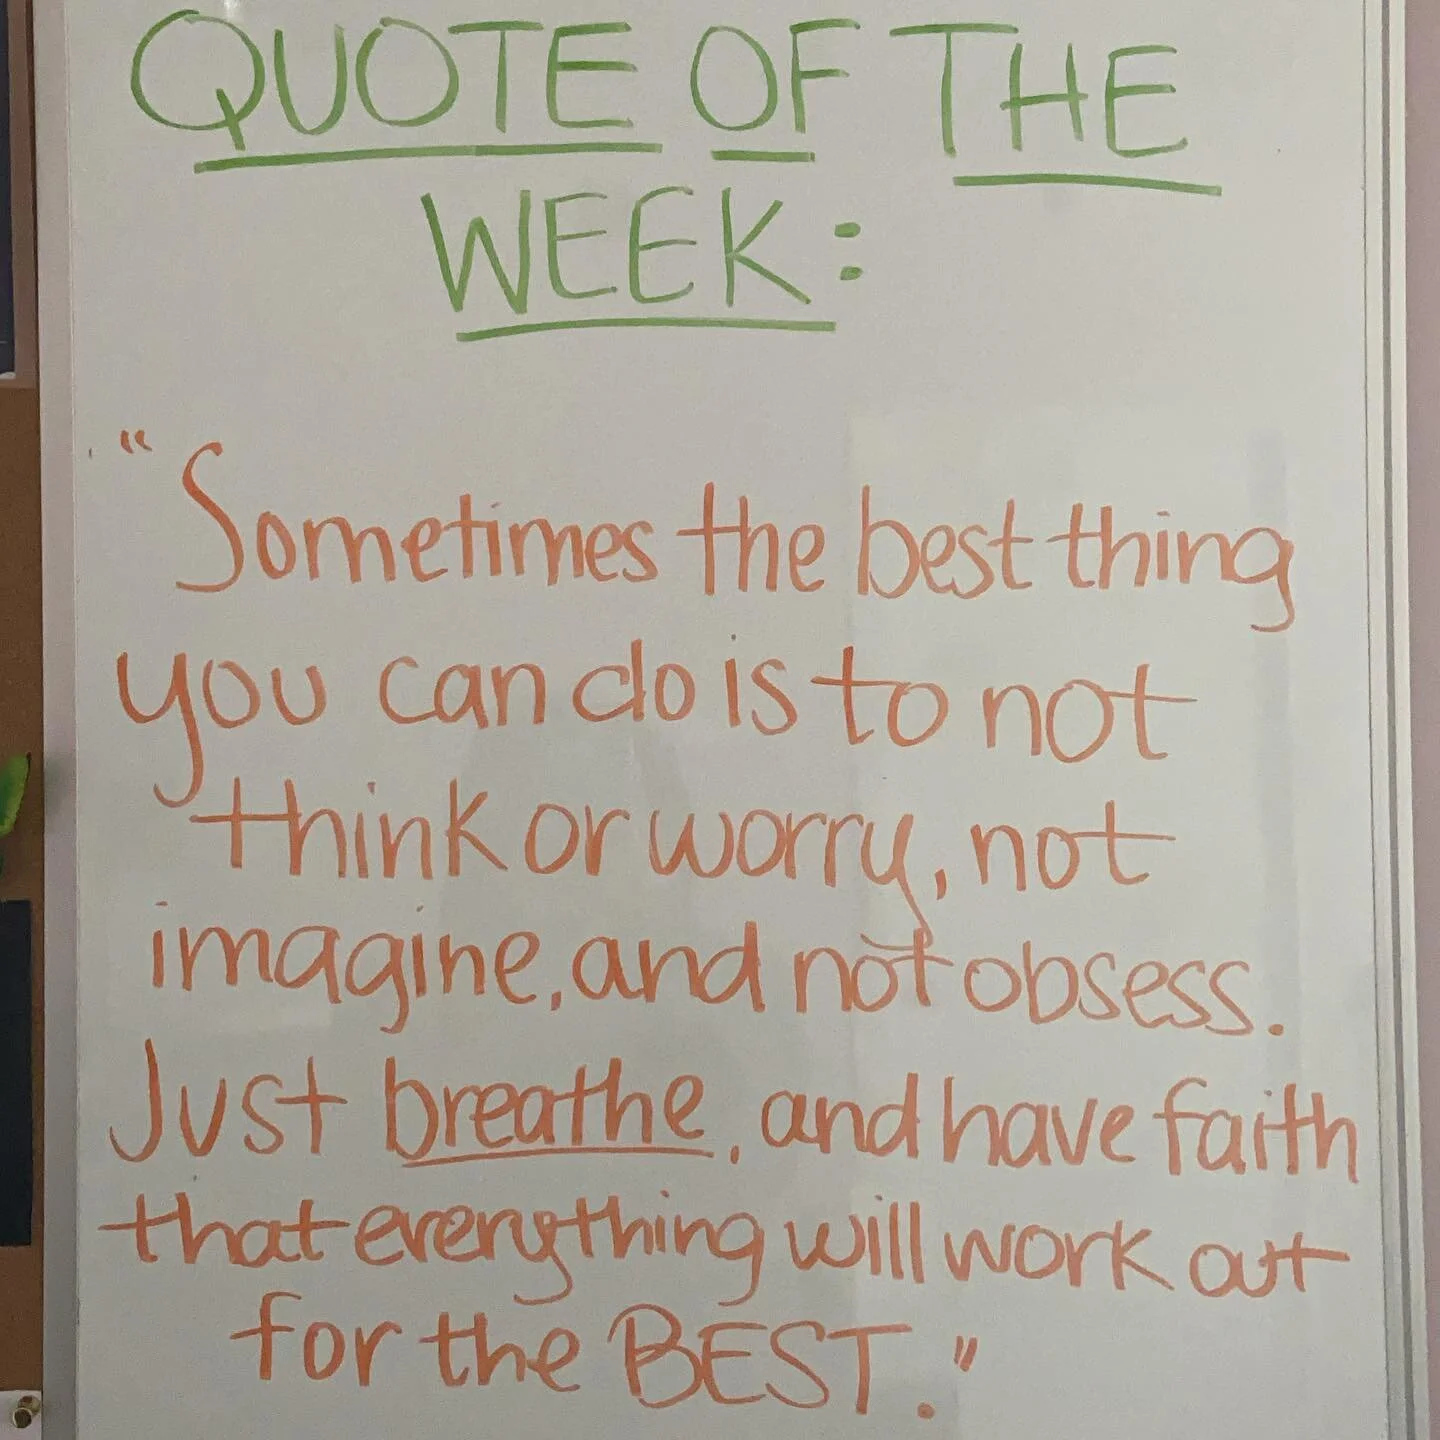 QUOTE OF THE
WEEK:
"Sometimes the best thing
you can do is to not
think or worry, not
imagine, and not obsess.
Just breathe, and have faith
that everything will work out
for the BEST."